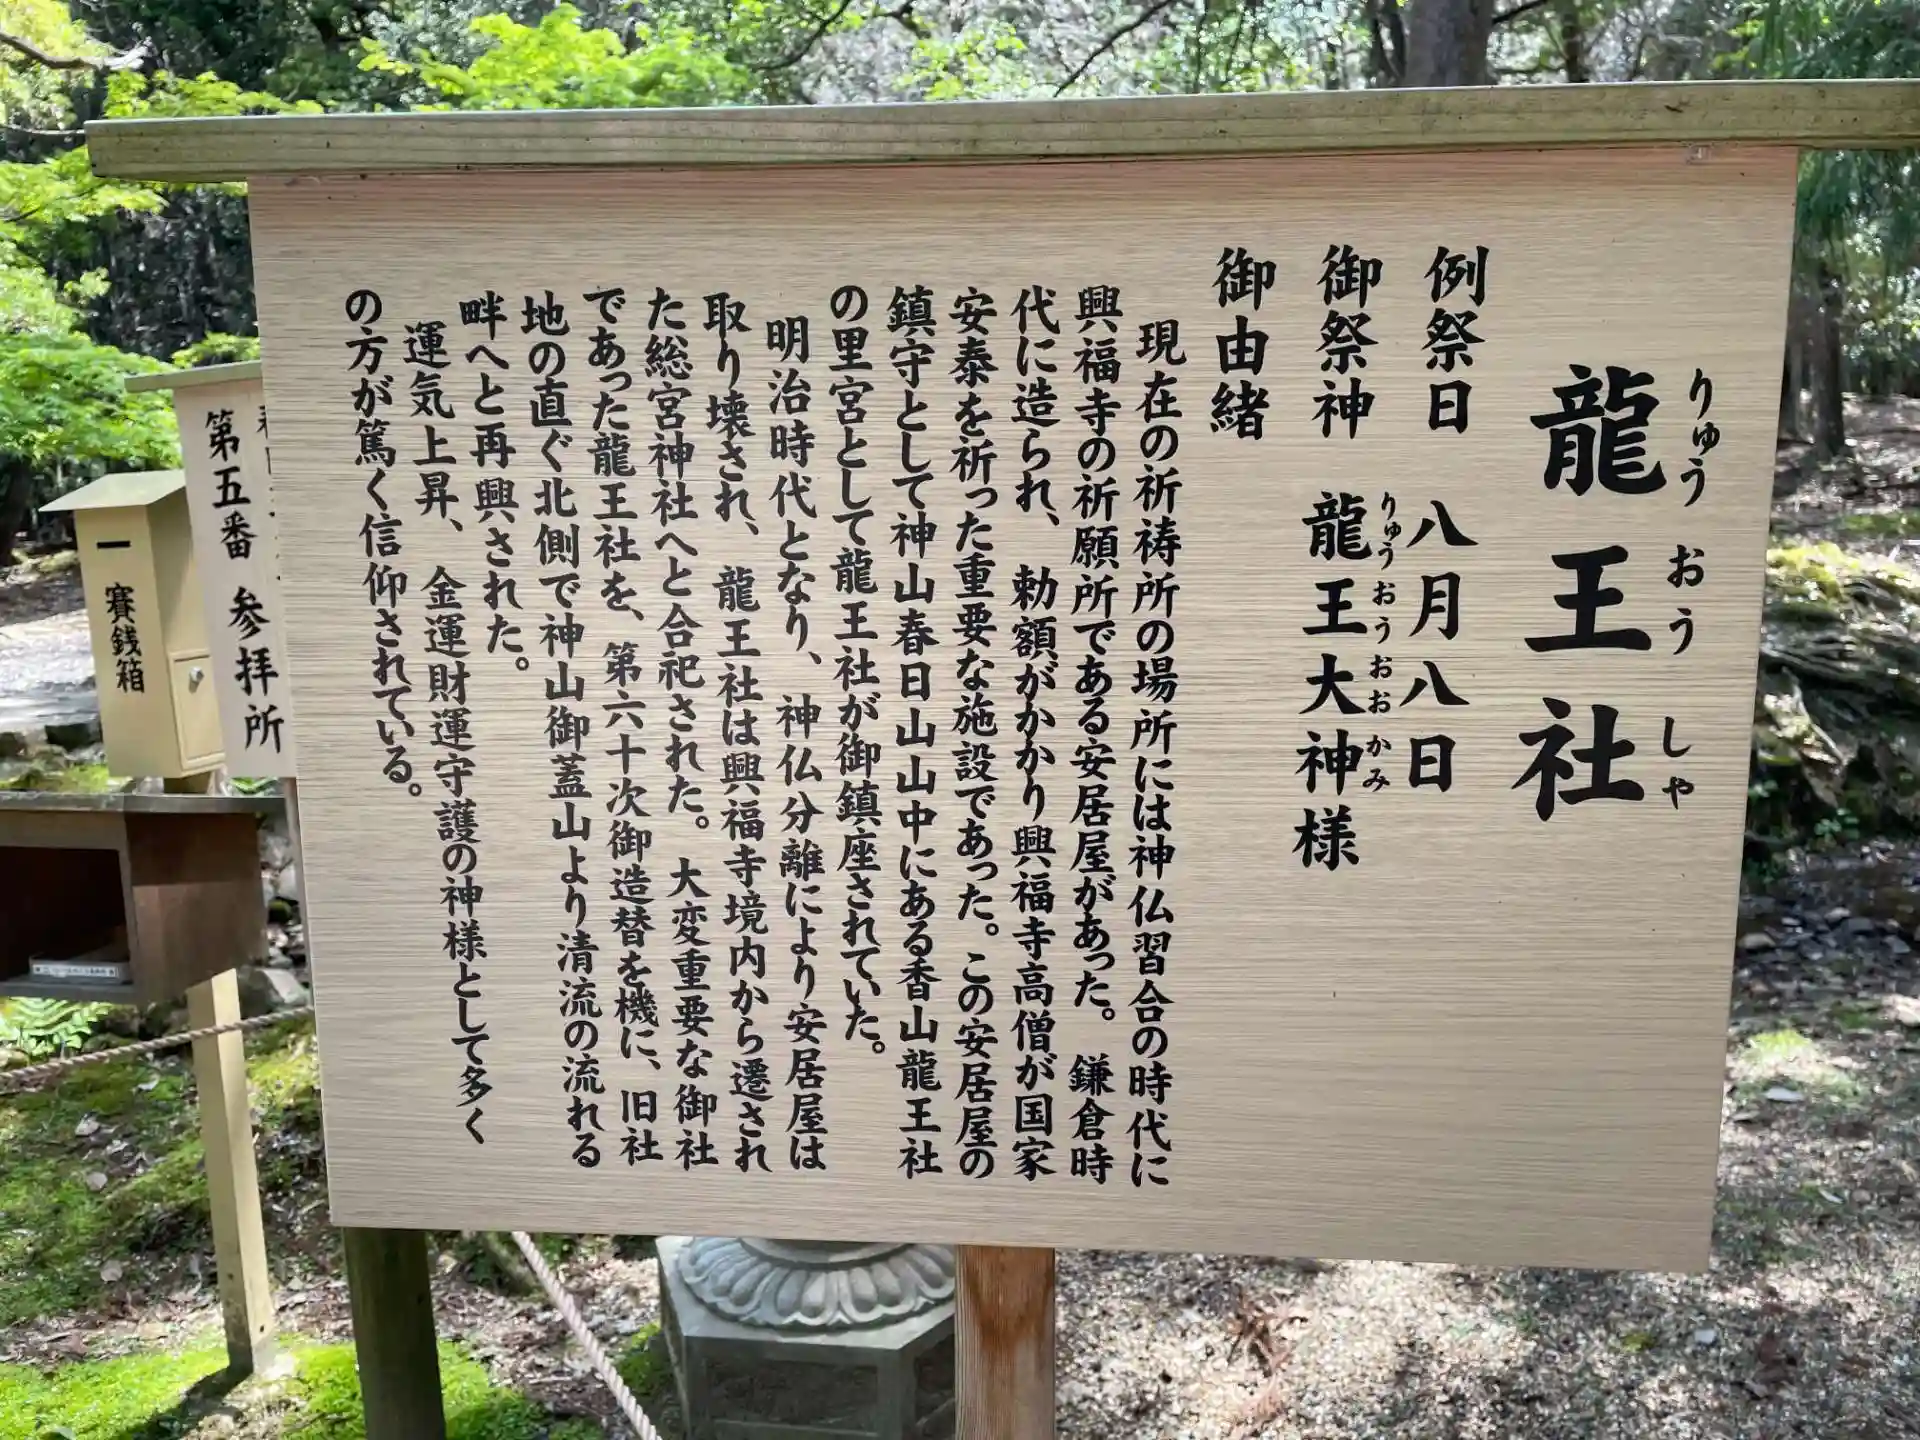 龍王社
りゅうおうしゃ
例祭日 八月八日
御祭神 龍王大神様
りゅうおうおおかみ
御由緒
現在の祈祷所の場所には神仏習合の時代に
興福寺の祈願所である安居屋があった。鎌倉時
代に造られ、勅額がかかり興福寺高僧が国家
安泰を祈った重要な施設であった。この安居屋の
鎮守として神山春日山山中にある香山龍王社
の里宮として龍王社が御鎮座されていた。
明治時代となり、神仏分離により安居屋は
取り壊され、龍王社は興福寺境内から遷され
た総宮神社へと合祀された。大変重要な御社
であった龍王社を、第六十次御造替を機に、旧社
地の直ぐ北側で神山御蓋山より清流の流れる
畔へと再興された。
運気上昇、金運財運守護の神様として多く
の方が篤く信仰されている。
第五番 参拝所
賽銭箱